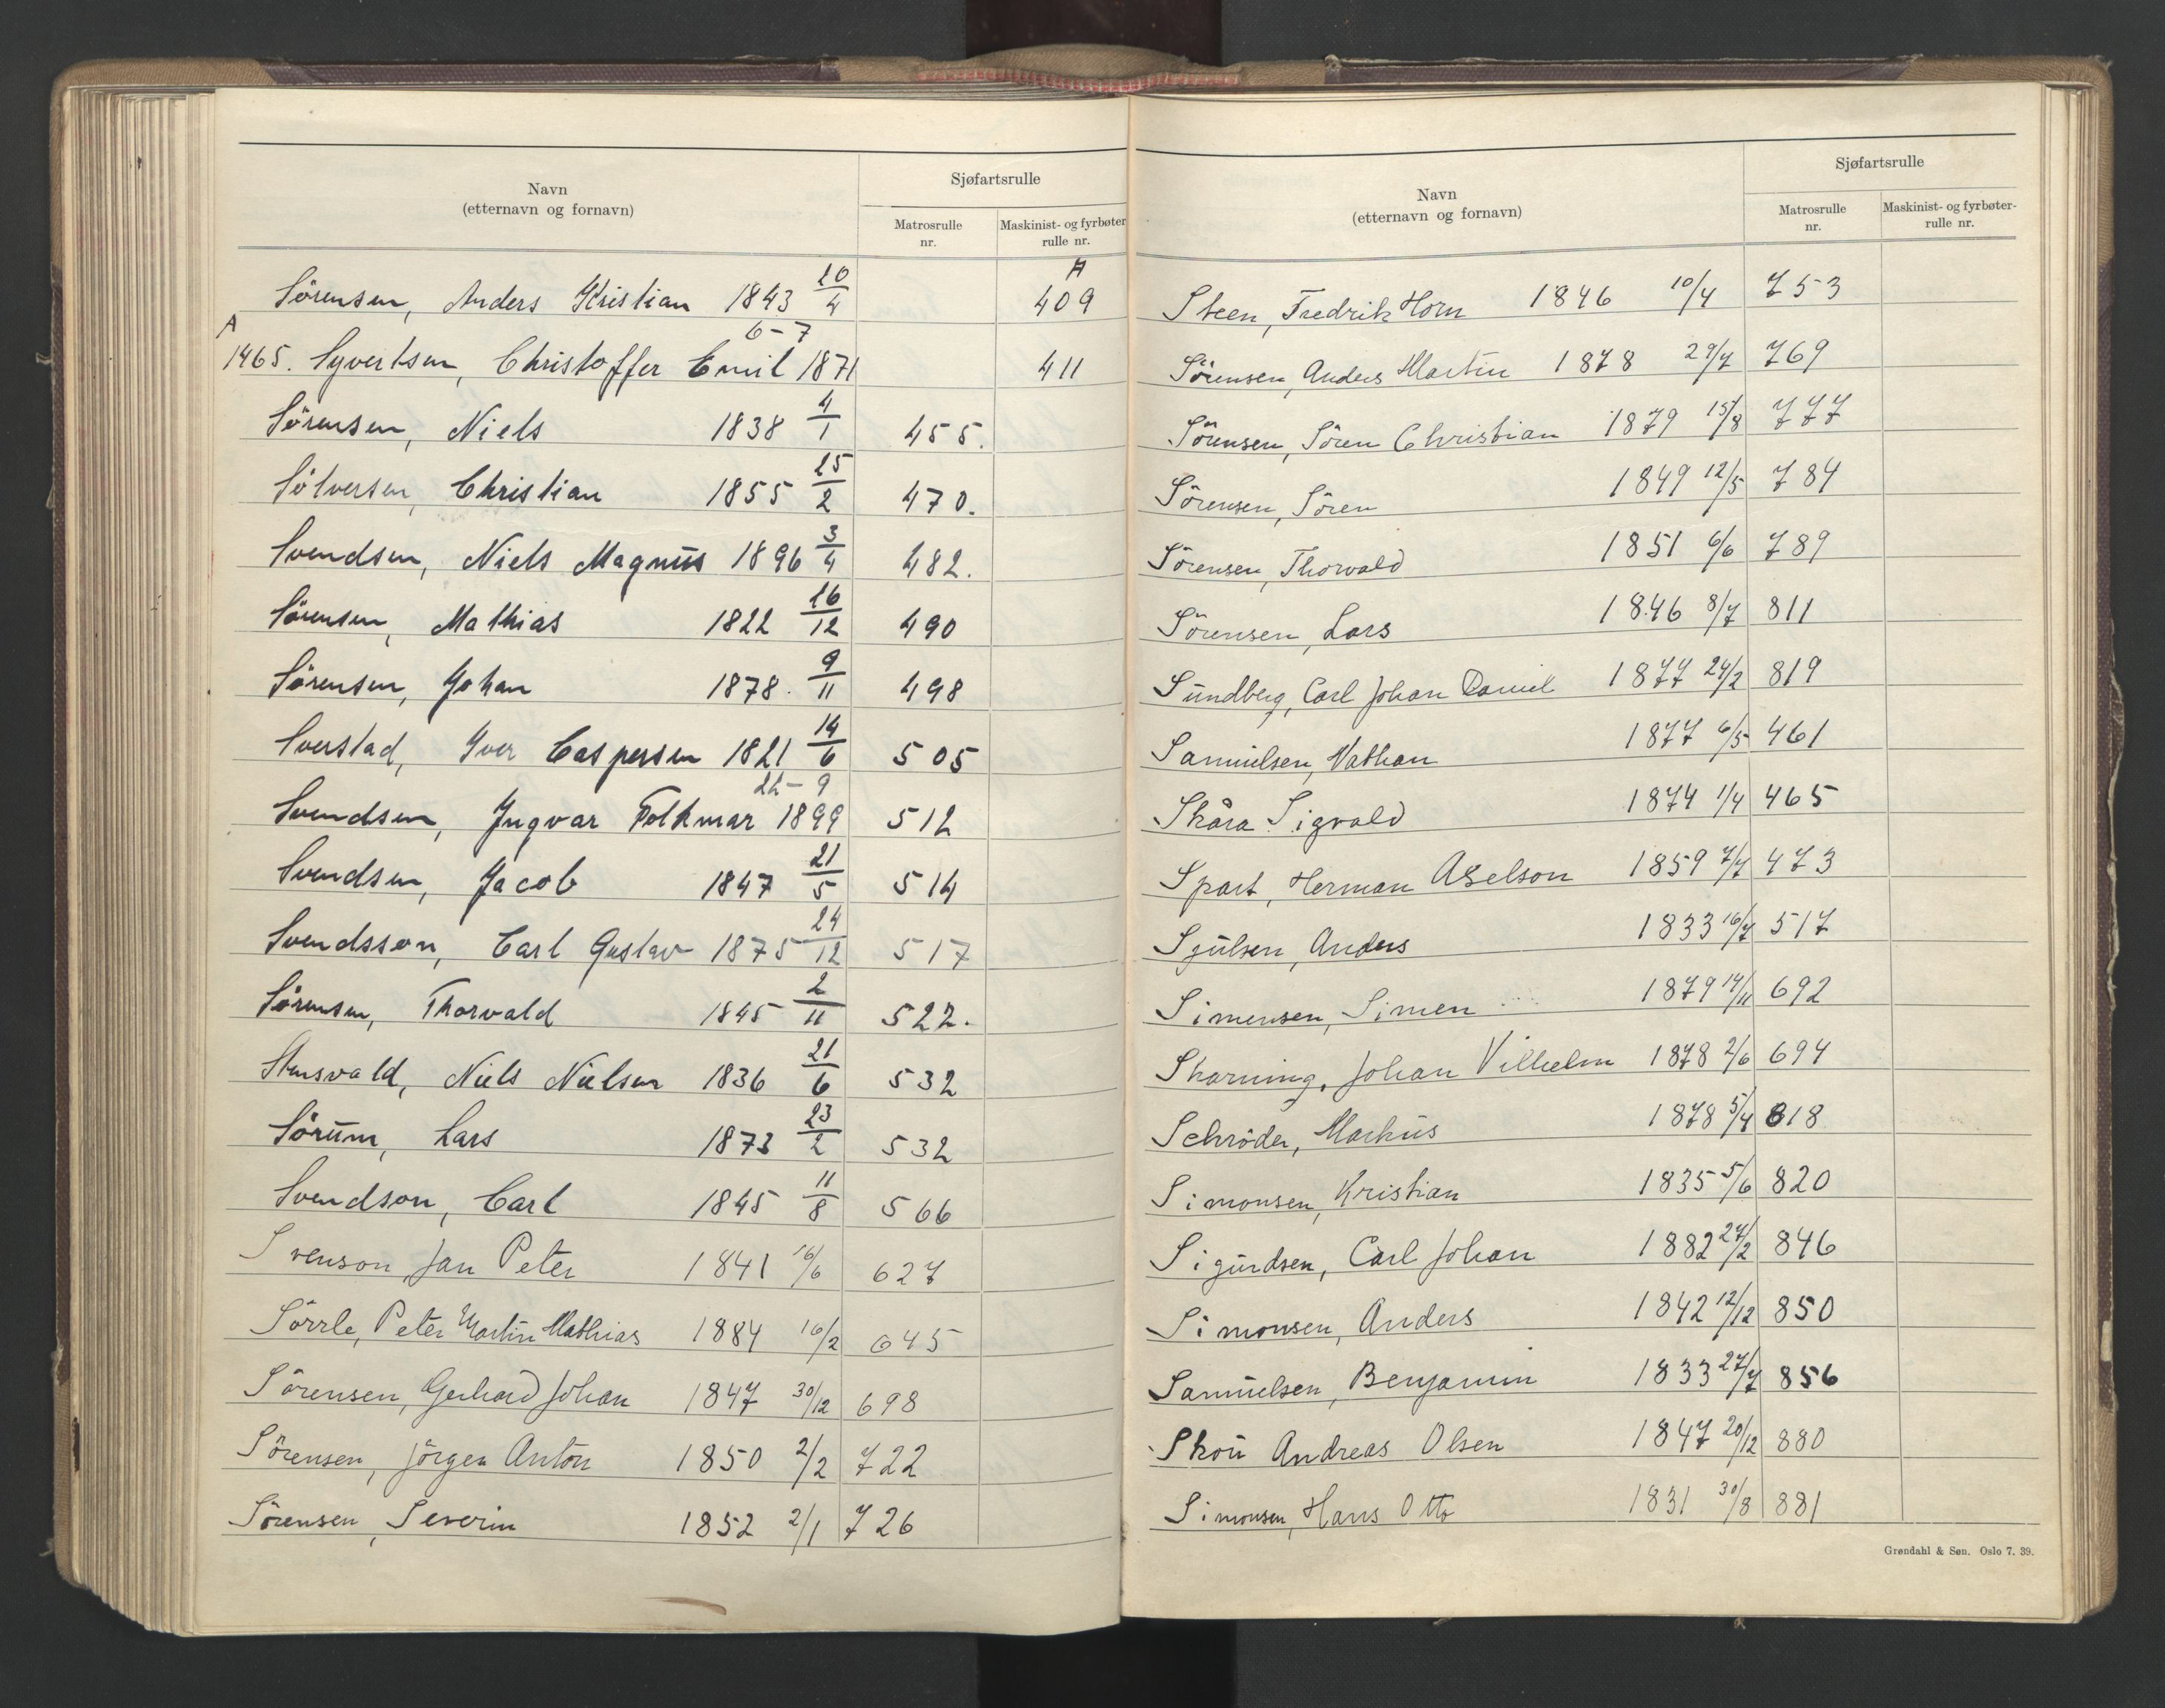 Navn
(etternavn og fornavn)
Sjøfartsrulle
Matrosrulle
nr.
Maskinist- og fyrbøter
rulle nr.
Sörensen, Anders Kristian 1843 10/4 A 409
A 1465. Syvertsen, Christoffer Emil 1871 6-7 411
Sörensen, Niels 1838 4/1 455.
Sölversen, Christian 1855 25/2 470.
Svendsen, Niels Magnus 1896 3/4 482.
Sörensen, Mathias 1822 26/12 490
Sörensen, Johan 1878. 9/11 498
Sverstad, Iver Caspersen 1821 14/6 505
Svendsen, Ingvar Folkmar 1899 22-9 512
Svendsen, Jacob 1847 21/5 514
Svendsson, Carl Gustav 1875 24/12 517
Sörensen, Thorvald 1845 2/11 522.
Stensvald, Niels Nielsen 1836 21/6 532
Sörum, Lars 1873 23/2 532
Svendson, Carl 1845 11/8 566
Svenson, Jan Peter 1841 16/6 627
Sörrle, Peter Martin Mathias 1884 16/2 645
Sörensen, Gerhard Johan 1847 30/12 698
Sörensen, Jörgen Anton 1850 2/2 722
Sörensen, Severin 1852 2/1 726
Navn
(etternavn og fornavn)
Sjøfartsrulle
Matrosrulle
nr.
Maskinist- og fyrbøter-
rulle nr.
Steen, Fredrik Horn 1846 10/4 753
Sörensen, Anders Martin 1878 29/7 769
Sörensen, Sören Christian 1879 15/8 777
Sörensen, Sören 1849 12/5 784
Sörensen, Thorvald 1851 6/6 789
Sörensen, Lars 1846 8/7 811
Sundberg, Carl Johan Daniel 1877 24/2 819
Samuelsen, Nathan 1877 6/5 461
Skåra Sigvald 1874 1/4 465
Spart, Herman Axelson 1859 7/7 473
Sjulsen, Anders 1833 16/7 517
Simensen, Simen 1879 14/11 692
Skarning, Johan Vilhelm 1878 2/6 694
Schröder, Markus 1878 5/4 818
Simonsen, Kristian 1835 5/6 820
Sigurdsen, Carl Johan 1882 27/2 846
Simonsen, Anders 1842 12/12 850
Samuelsen, Benjamin 1833 27/7 856
Skou Andreas Olsen 1847 20/12 880
Simonsen, Hans Otto 1831 30/8 881
Grøndahl & Søn. Oslo 7. 39.